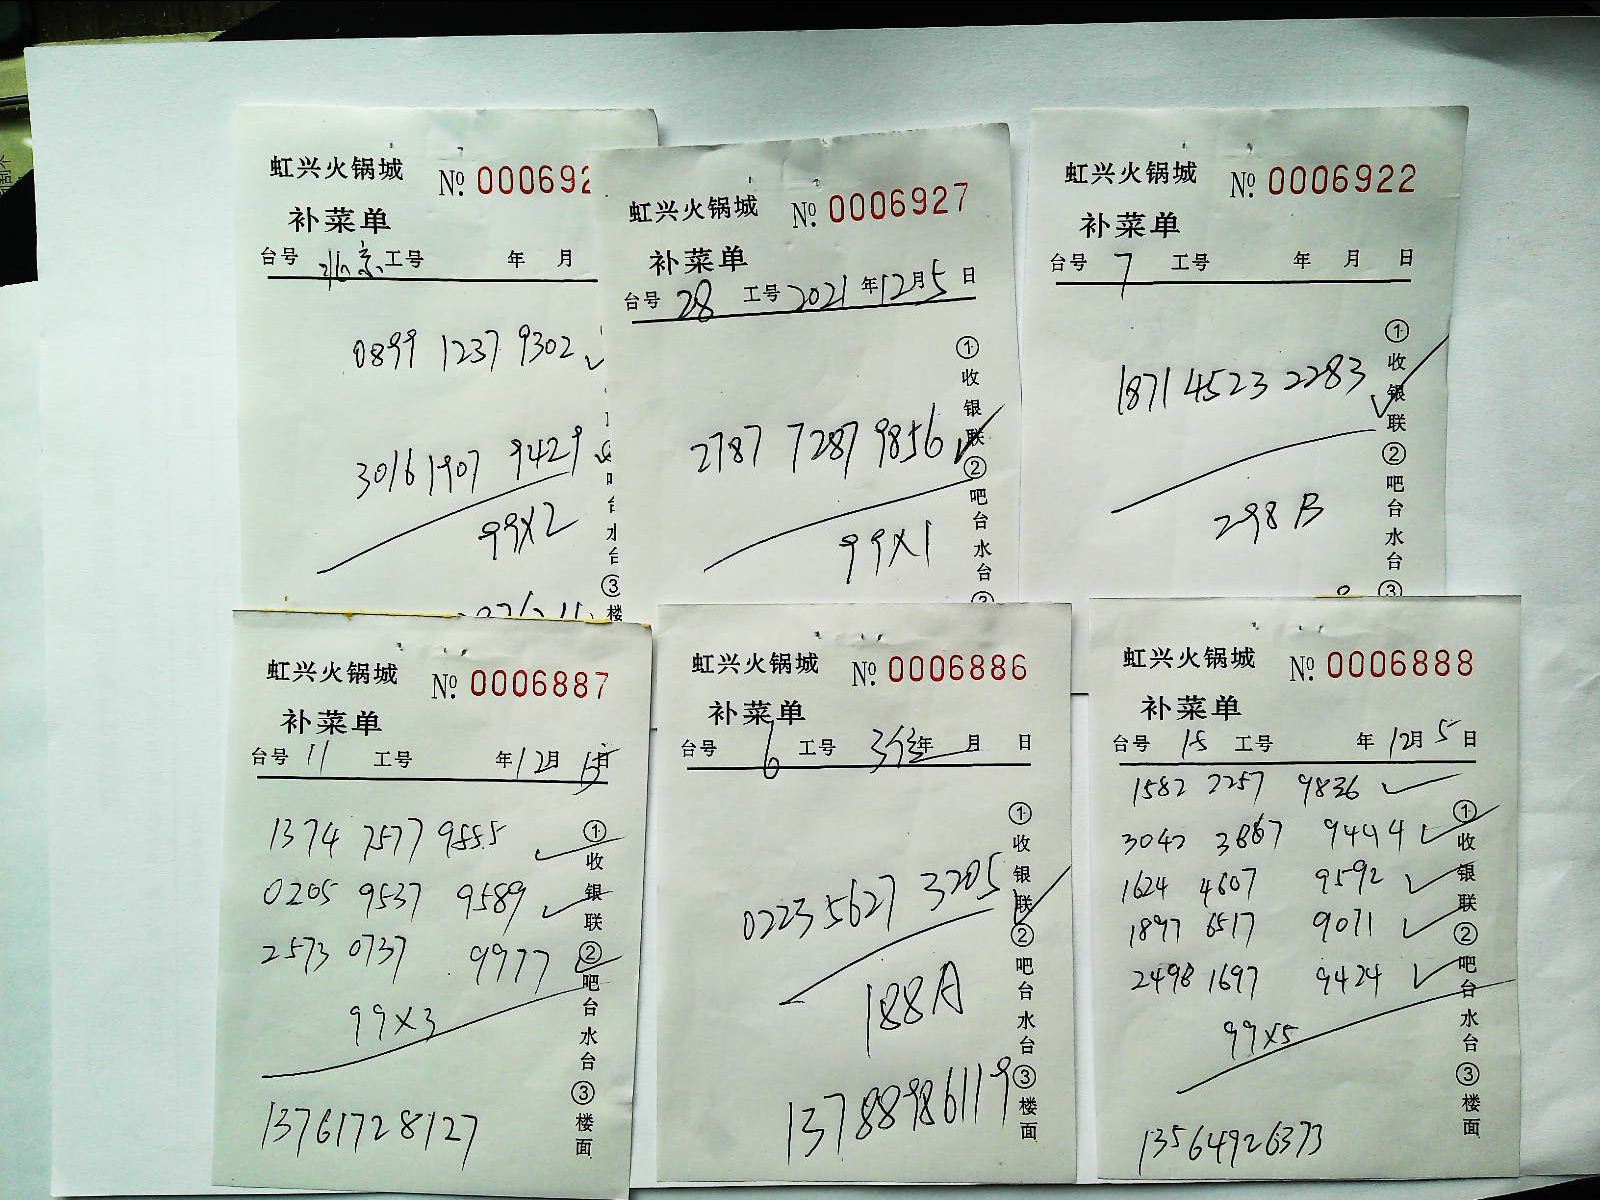 虹兴火锅城 No. 000692
补菜单
台号 北京 工号 年 月
0899 1237 9302
3016 1907 9429
99×2
③
楼
虹兴火锅城 No. 0006927
补菜单
台号 28 工号 2021 年 12 月 5 日
2787 7287 9856
99×1
①收银联②吧台水台
虹兴火锅城 No. 0006922
补菜单
台号 7 工号 年 月 日
1871 4523 2283
298 B
①收银联②吧台水台③
虹兴火锅城 No. 0006887
补菜单
台号 11 工号 年 12 月 日
1374 7577 9555
0205 9537 9589
2573 0737 9977
99×3
13761728127
①收银联②吧台水台③楼面
虹兴火锅城 No. 0006886
补菜单
台号 6 工号 年 月 日
0223 5627 3205
188A
13788986119
①收银联②吧台水台③楼面
虹兴火锅城 No. 0006888
补菜单
台号 15 工号 年 12 月 5 日
1582 2257 9836
3042 3867 9444
1624 4607 9592
1897 6517 9071
2498 1697 9424
99×5
13564926373
①收银联②吧台水台③楼面